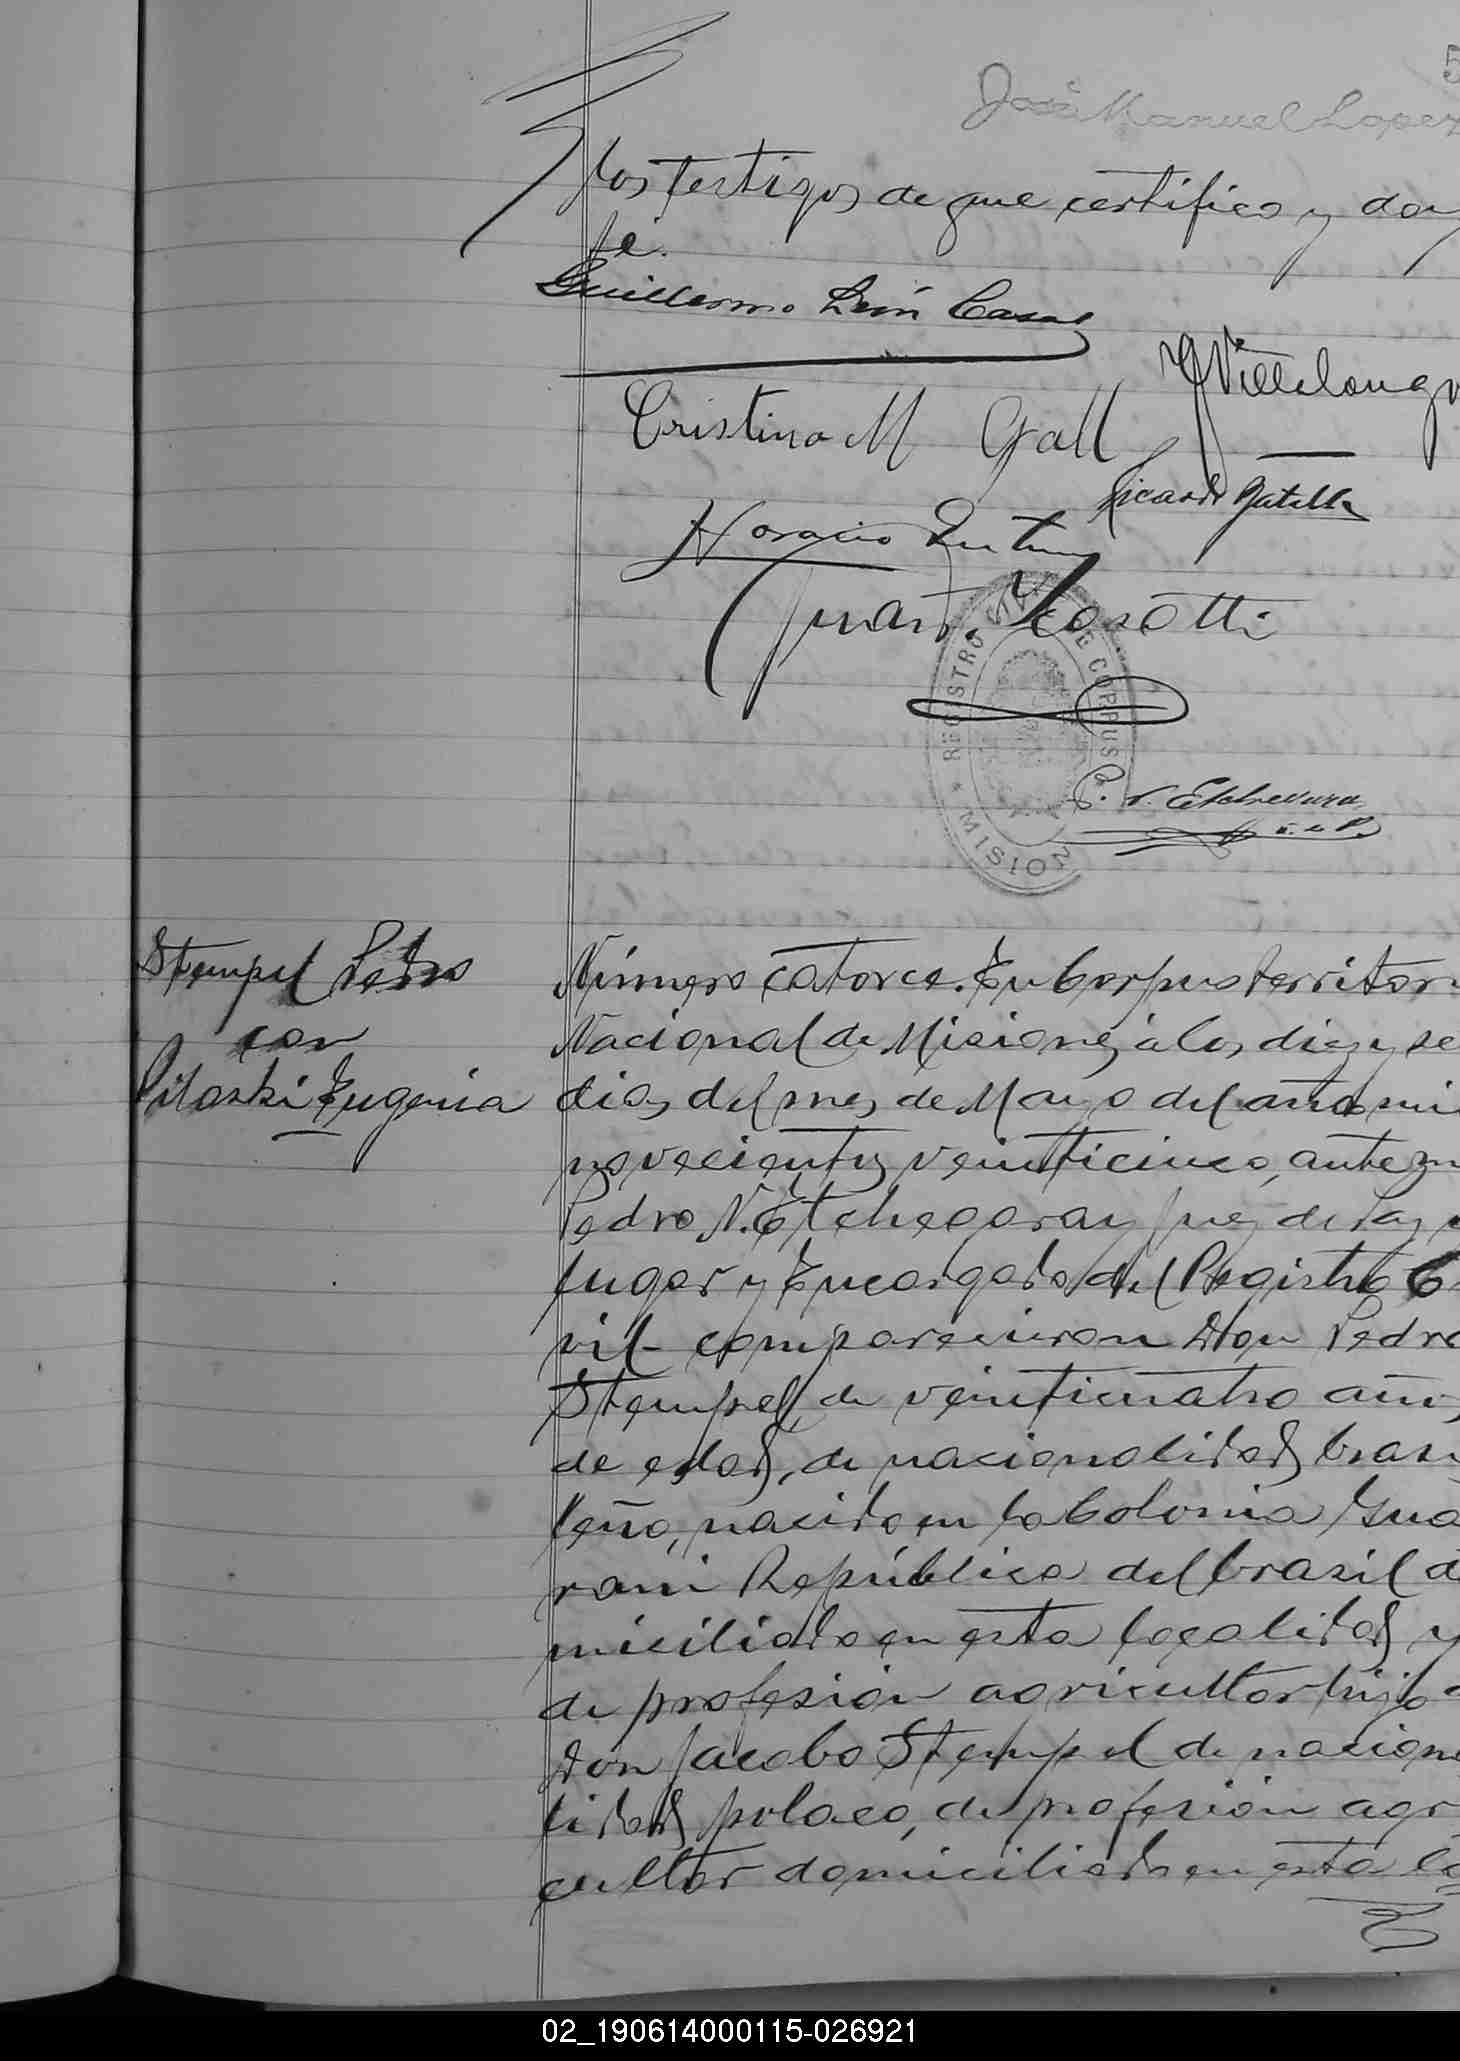 5
José Manuel Lopez
los testigos de que certifico y doy
fé.
Guillermo León Casas
G Villalonga
Cristina M Gall
Ricardo
Horacio
Juan
REGISTRO CIVIL DE CORPUS
MISION
P. N. Etchegaray
Stempel Pedro
con
Pitoski Eugenia
Número catorce. En Corpus territor
Nacional de Misiones, á los diez y se
dias del mes de Mayo del año mi
novecientos veinticinco, ante m
Pedro N. Etchegaray Juez de Paz
lugar y Encargado del Registro Ci
vil comparecieron Don Pedro
Stempel, de veinticuatro años
de edad, de nacionalidad brasi
leño, nacido en la Colonia Gua
rani República del brasil do
miciliado en esta localidad y
de profesión agricultor hijo d
Don Jacobo Stempel de naciona
lidad polaco, de profesión agri
cultor domiciliado en esta lo
02_190614000115-026921